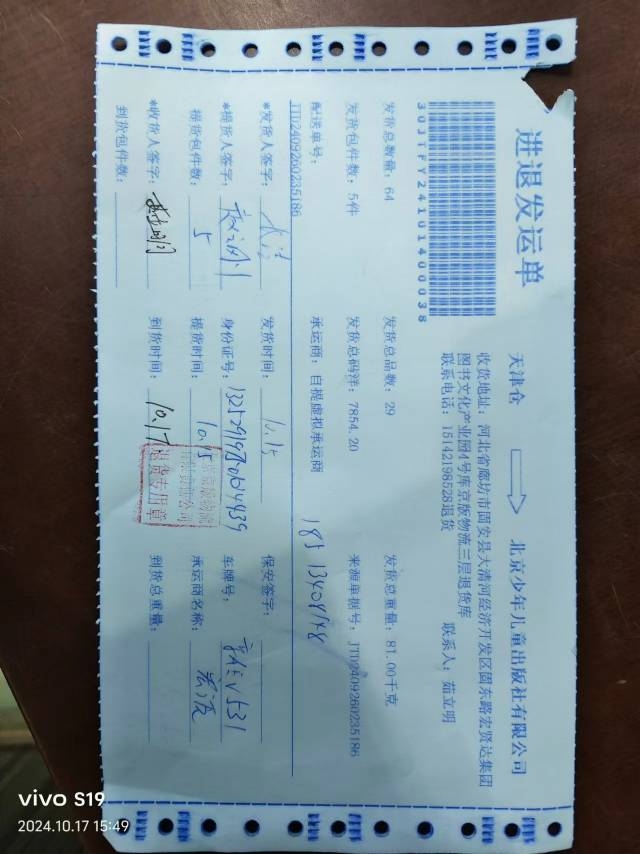 进退发运单
天津仓
北京少年儿童出版社有限公司
30JTFY24101400038
收货地址：河北省廊坊市固安县大清河经济开发区固东路宏贤达集团
图书文化产业园4号库京版物流三层退货库
联系电话：15142198528退货 联系人：茹立明
发货总数量：64 发货总品数：29 发货总重量：81.00千克
发货包件数：5件 发货总码洋：7854.20 来源单据号：JTD2409260235186
配送单号： 承运商：自提虚拟承运商
JTD2409260235186
*发货人签字： 发货时间：10.15 保安签字：
*提货人签字： 身份证号： 车牌号：
揽货包件数：5 揽货时间：10.15 承运商名称：
*收货人签字： 到货时间：10.17 到货总重量：
到货包件数：
退货专用章
vivo S19
2024.10.17 15:49